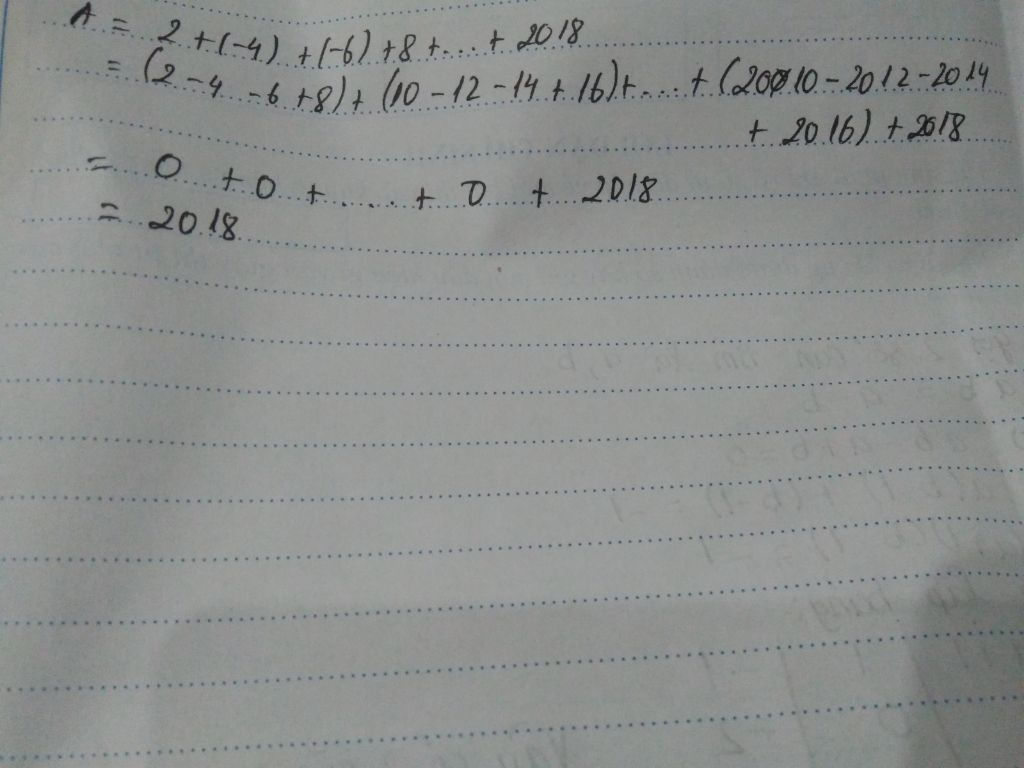 A = 2 + (-4) + (-6) + 8 + ... + 2018
= (2 - 4 - 6 + 8) + (10 - 12 - 14 + 16) + ... + (2010 - 2012 - 2014
+ 2016) + 2018
= 0 + 0 + .... + 0 + 2018
= 2018